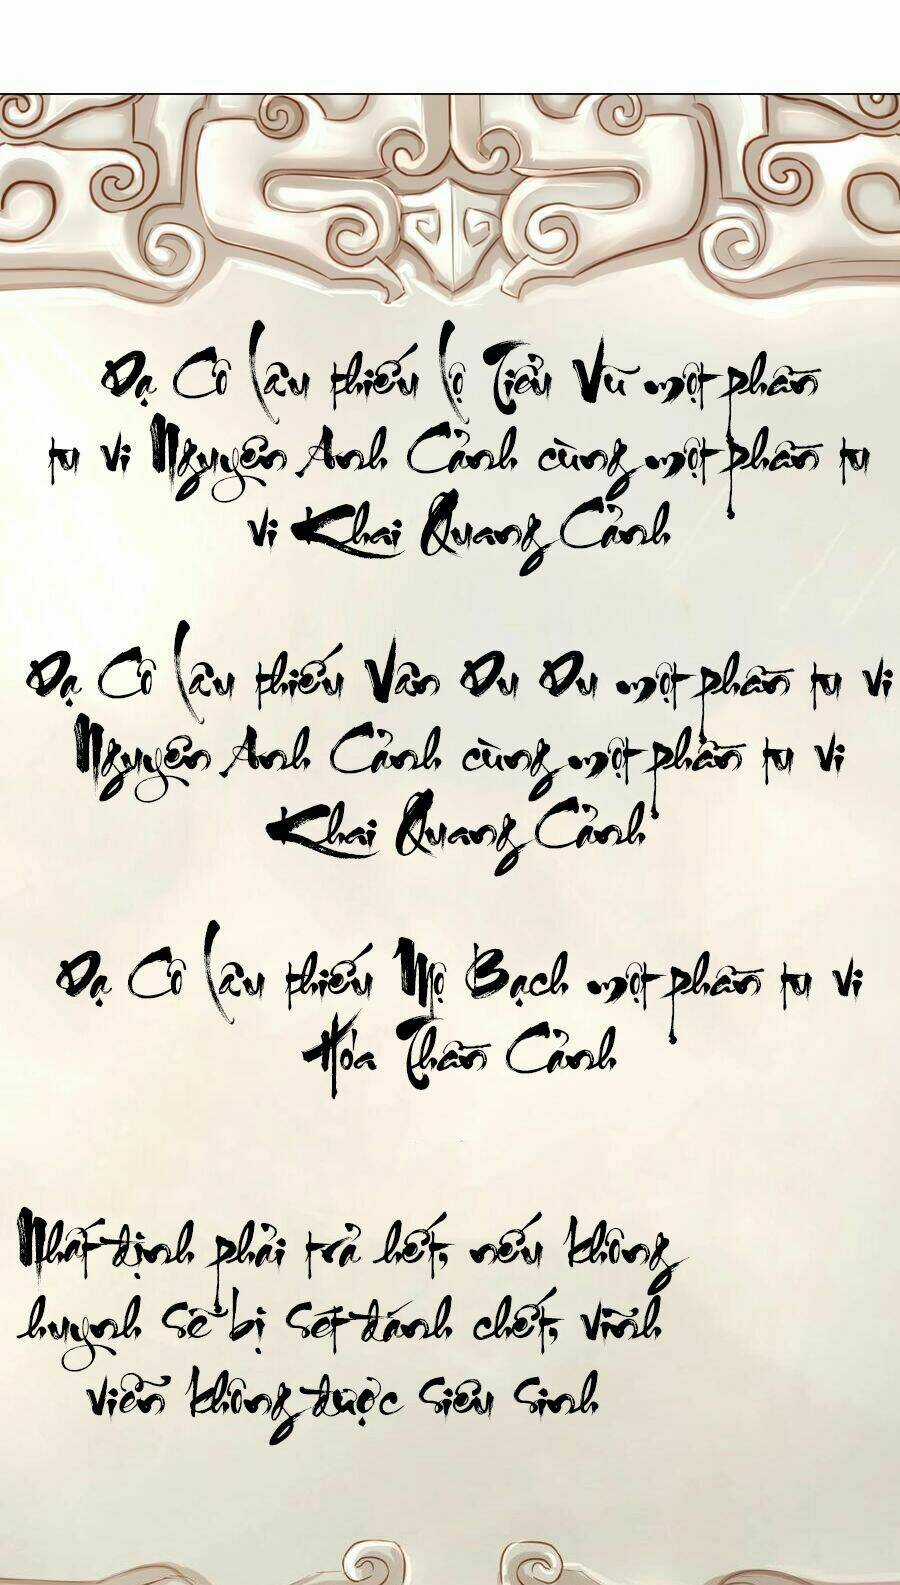 Dạ Cô Lâu thiếu Lộ Tiểu Vũ một phần
tu vi Nguyên Anh Cảnh cùng một phần tu
vi Khai Quang Cảnh
Dạ Cô Lâu thiếu Vân Du Du một phần tu vi
Nguyên Anh Cảnh cùng một phần tu vi
Khai Quang Cảnh
Dạ Cô Lâu thiếu Mộ Bạch một phần tu vi
Hóa Thần Cảnh
Nhất định phải trả hết, nếu không
huynh sẽ bị sét đánh chết, vĩnh
viễn không được siêu sinh